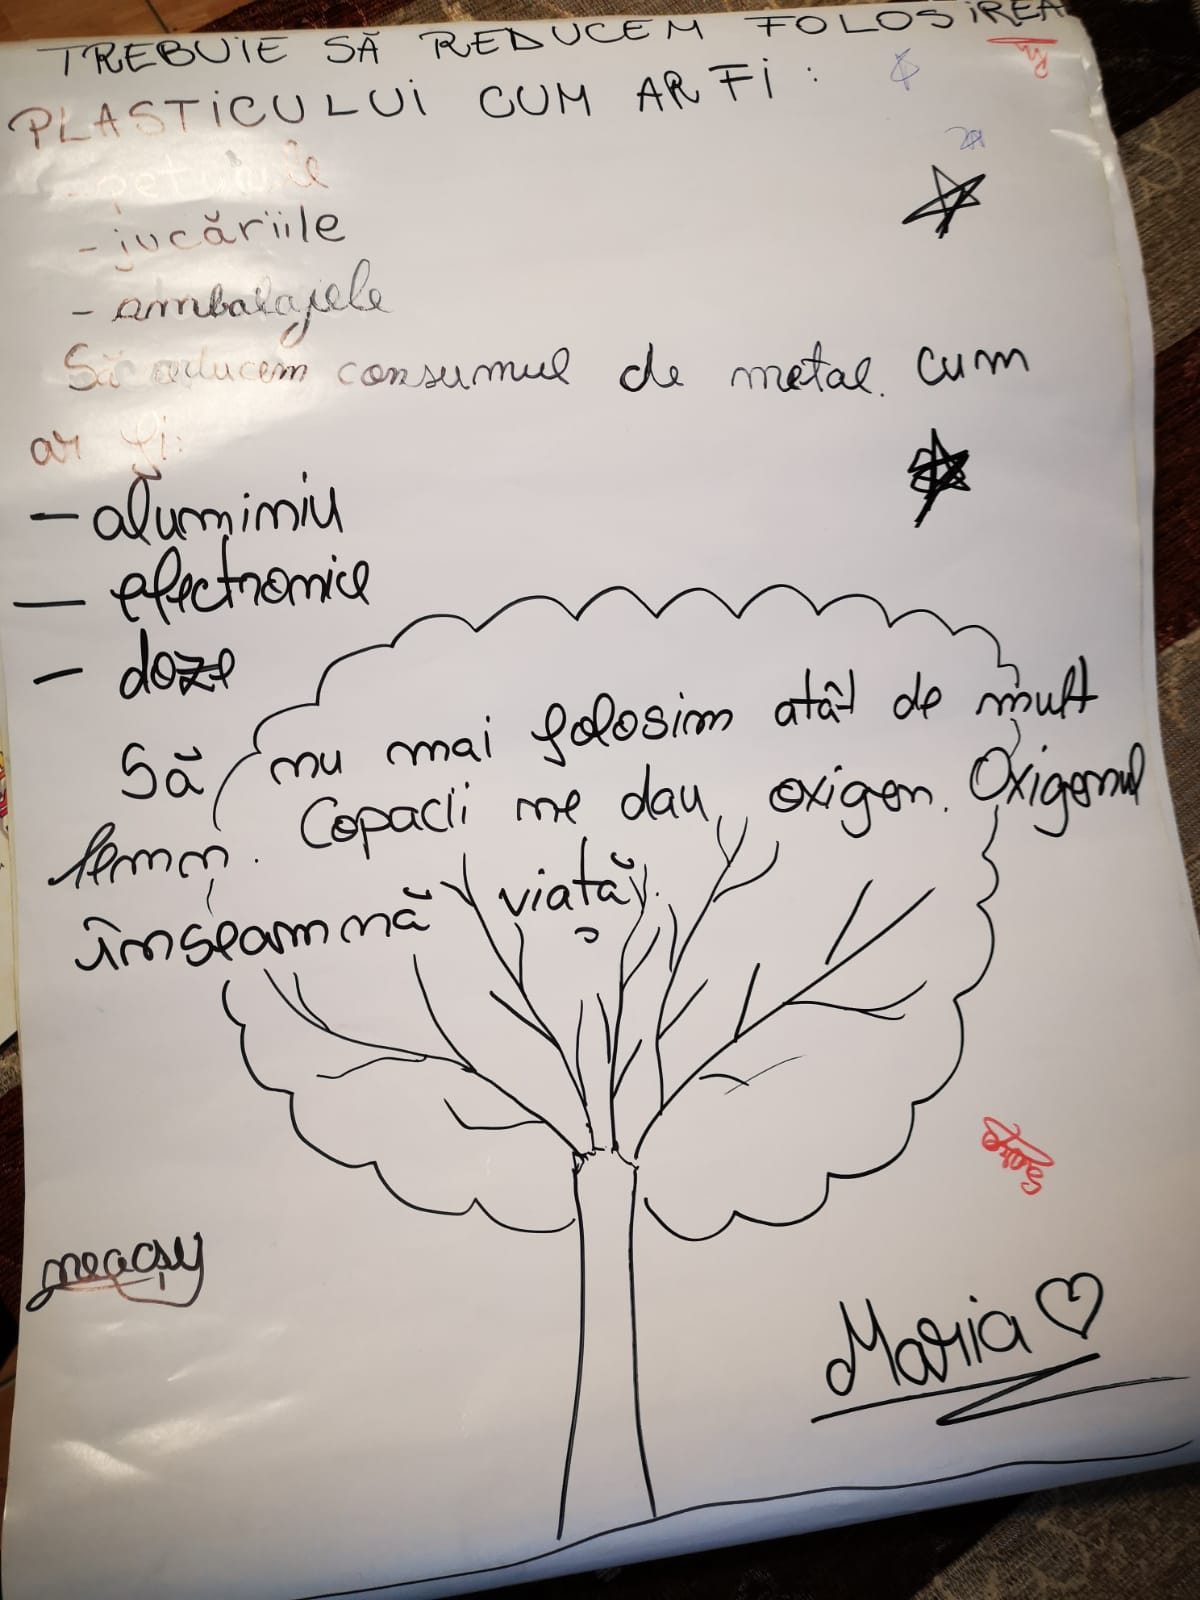 TREBUIE SĂ REDUCEM FOLOSIREA
PLASTICULUI CUM AR FI :
- peturile
- jucăriile
- ambalajele
Să reducem consumul de metal. cum
ar fi:
- aluminiu
- electronice
- doze
Să nu mai folosim atât de mult
lemn. Copacii ne dau oxigen. Oxigenul
înseamnă viață.
Maria